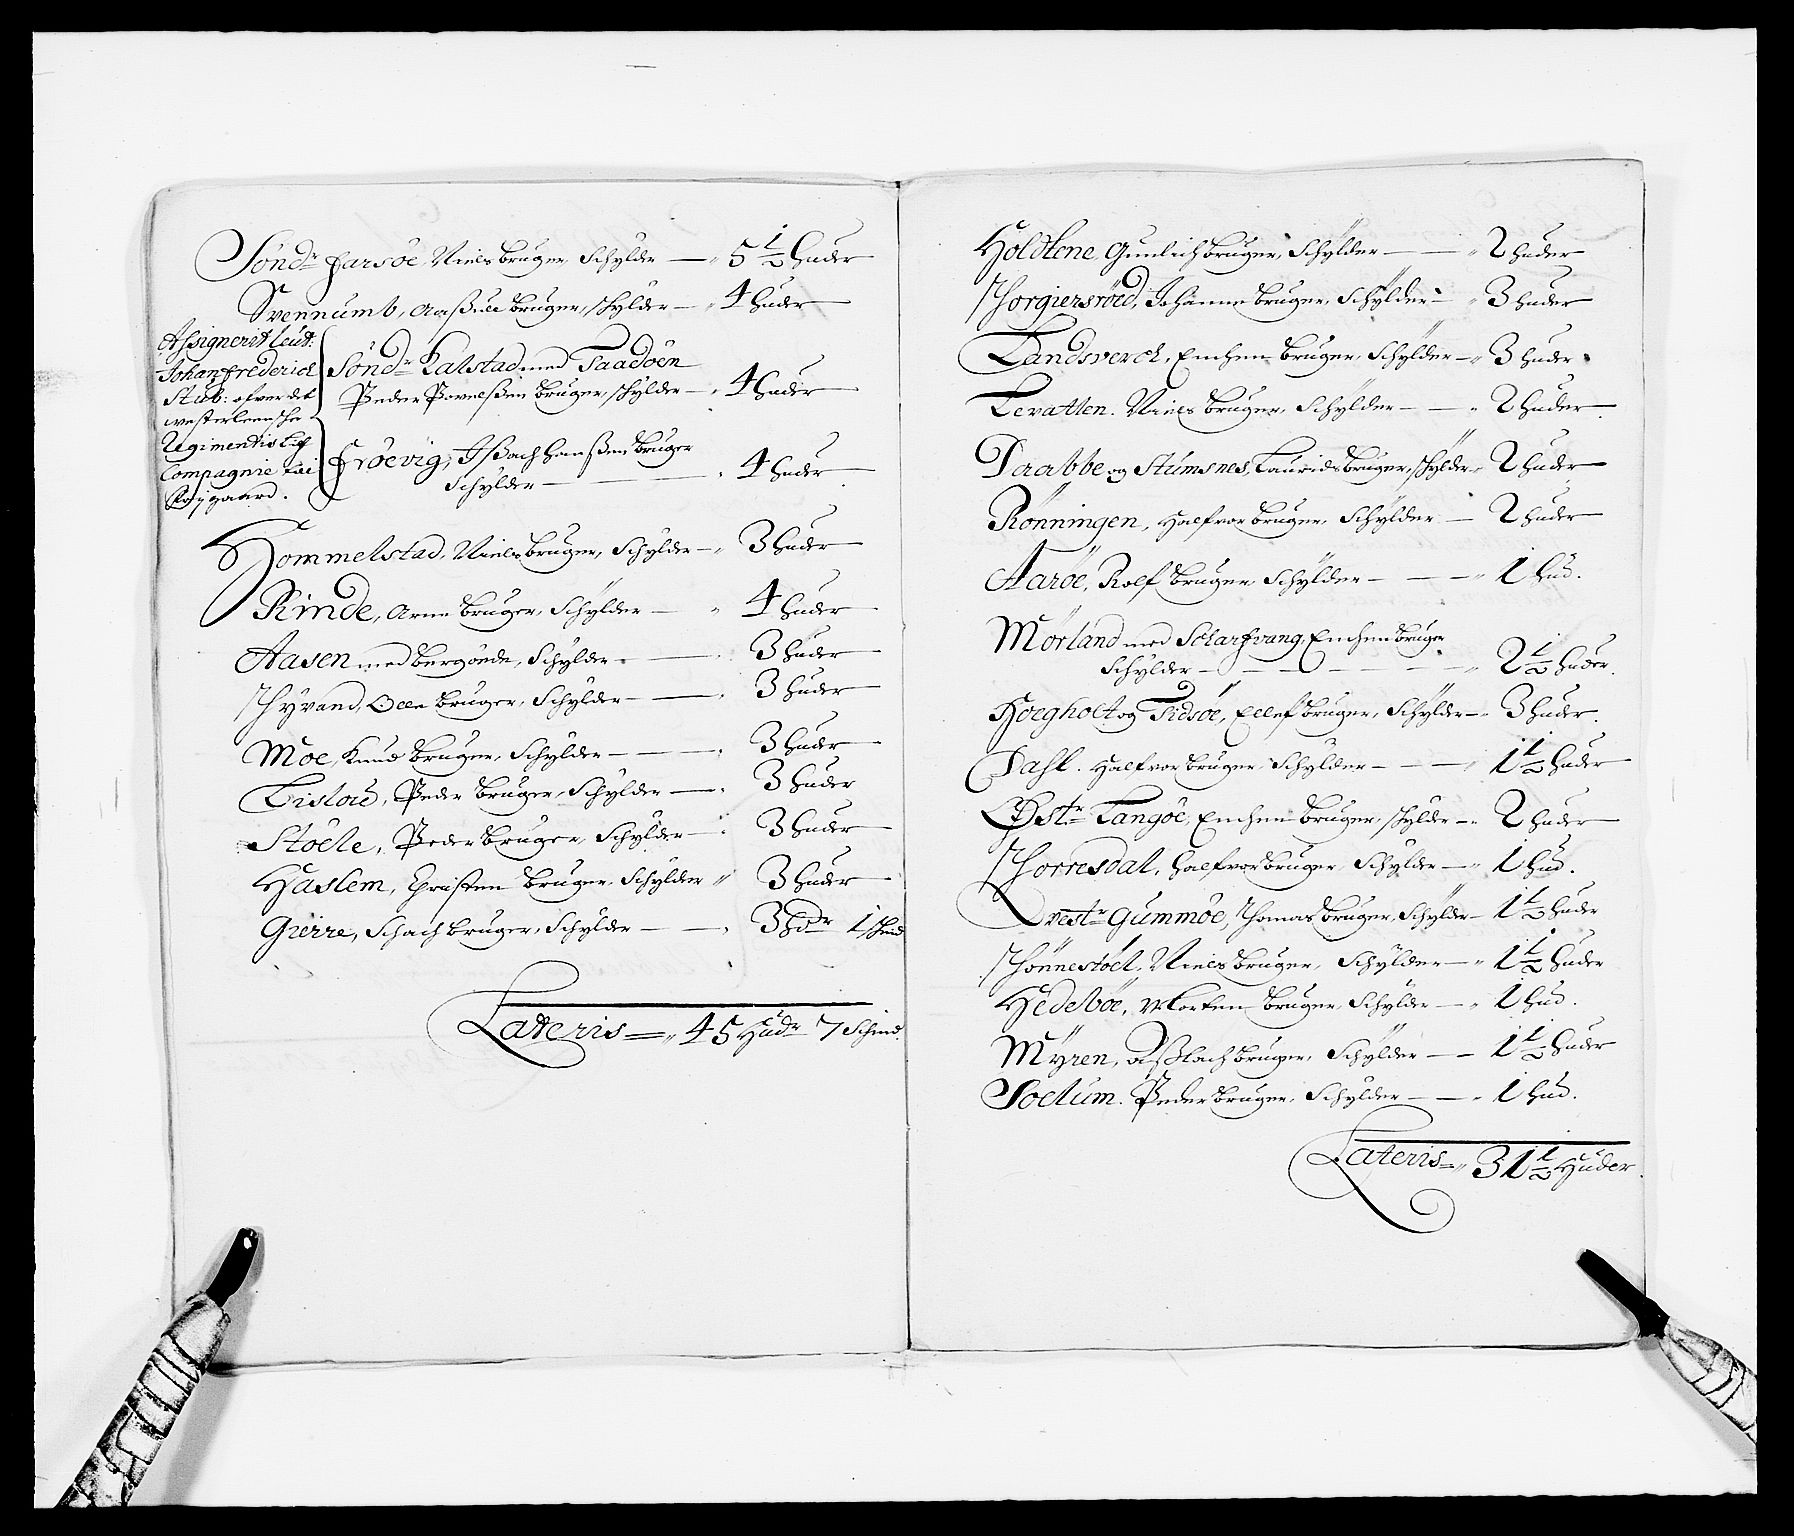 Söndr Farsöe, Niels bruger, Schylder — 5 1/2 huder
Svennumb, Aaßuld bruger, schylder — 4 huder
Assignerit Leut:
Johan Frederick
Stub: ofver det
westerleensche
Regimentis Lif
Compagnie
gaard.
Söndr Kalstad med Taadöen
Peder Povelßen bruger, schylder — 4 huder
Fröevig, Ißach Hanßen bruger
Schylder — 4 huder
Hommelstad, Niels bruger, Schylder — 3 huder
Rinde, Arne bruger, Schylder — 4 huder
Aasen med Schylder — 3 huder
Thyvand, Olle bruger, Schylder — 3 huder
Moe, Knud bruger, Schylder — 3 huder
Listoul, Peder bruger, Schylder — 3 huder
Stöele, Peder bruger, Schylder — 3 huder
Haslem, Christen bruger, Schylder 3 huder
Gierre, Schach bruger, Schylder — 3 hdr 1 schind
Lateris = 45 Hudr 7 Schind.
Holttene, Gunlich bruger, Schylder — 2 huder
Thorgiersröed, Johanne bruger, Schylder — 3 huder
Landsverch, Enchen bruger, Schylder — 3 huder
Levatten. Niels bruger, Schylder — 2 huder
Draabbe og Stumsnes, Laurids bruger, schylder 2 huder
Rönningen, Halfvor bruger, Schylder — 2 huder
Aaröe, Rolf bruger, Schylder — 1 hud.
Mörland med Scharfvang, Enchen bruger
Schylder — 2 1/2 huder.
Höegholt og Tidsöe, Ellef bruger, Schylder — 3 huder.
Dahl. Halfvor bruger, Schylder — 1 1/2 huder
Östr Langöe, Enchen bruger, schylder — 2 huder
Thorresdal, Halfvor bruger, Schylder — 1 hud.
Vestr Gummöe, Thomas bruger, Schylder — 1 1/2 huder
Thönnestöel, Niels bruger, Schylder — 1 1/2 huder
Hedelböe, Morten bruger, Schylder — 1 hud.
Myren, Aßlach bruger, Schylder — 1 1/2 huder
Soelum. Peder bruger, Schylder — 1 hud.
Lateris = 31 1/2 Huder.